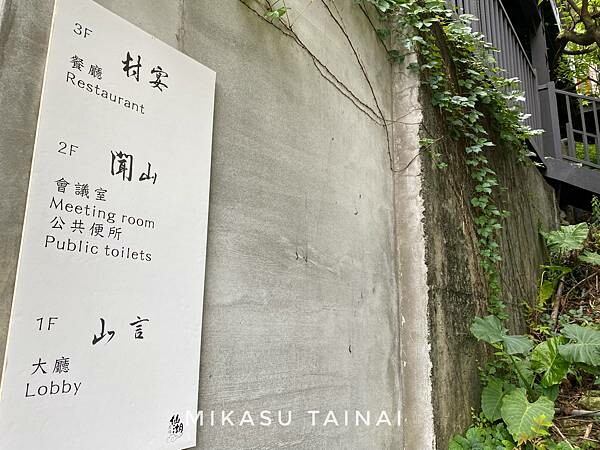 3F
村宴
餐廳
Restaurant
2F
聞山
會議室
Meeting room
公共便所
Public toilets
1F
山言
大廳
Lobby
仙湖
MIKASU TAINAI